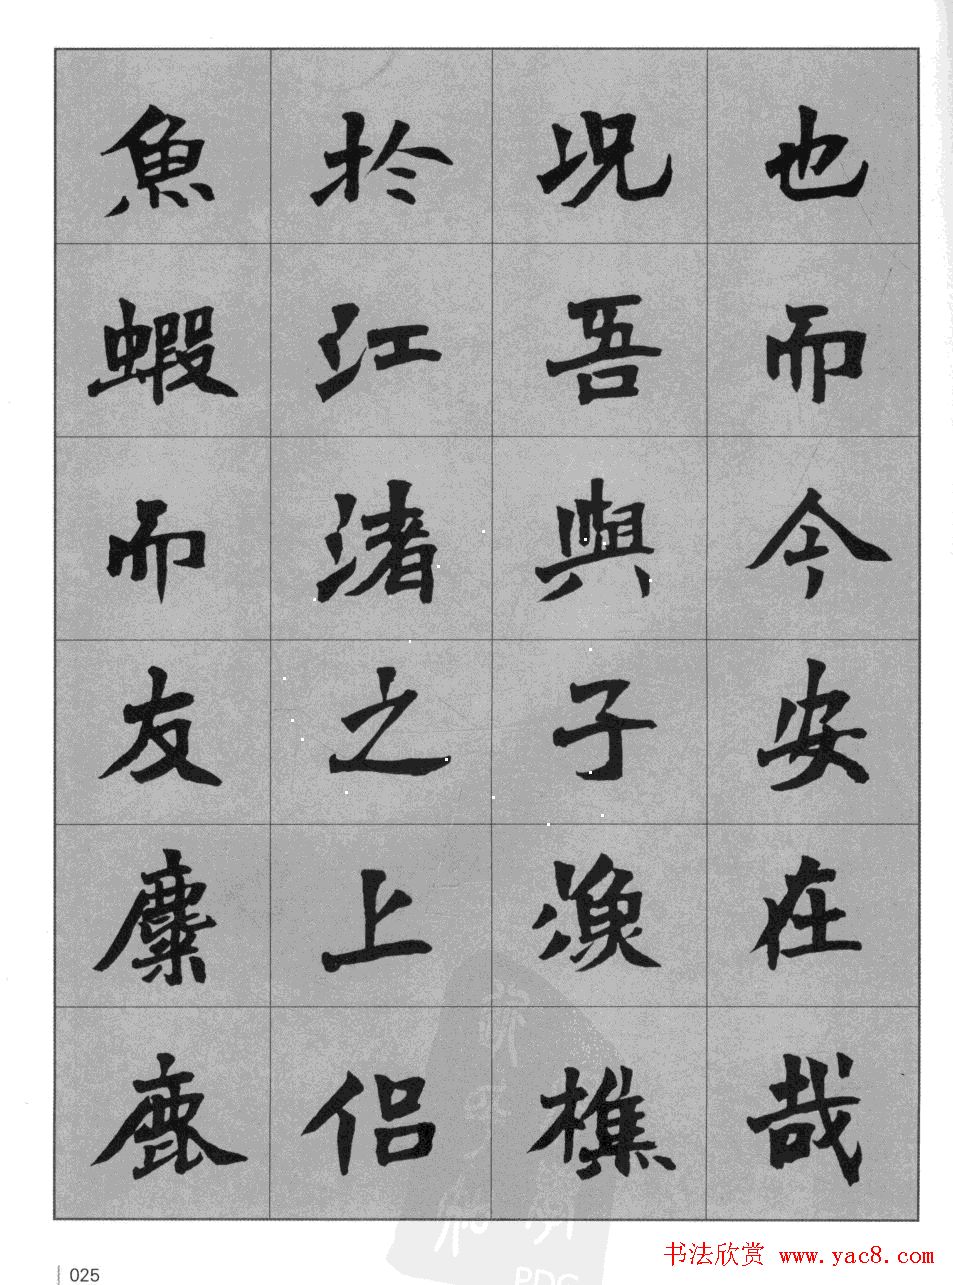 也而今安在哉
況吾與子漁樵
於江渚之上侶
魚蝦而友麋鹿
025
书法欣赏 www.yac8.com